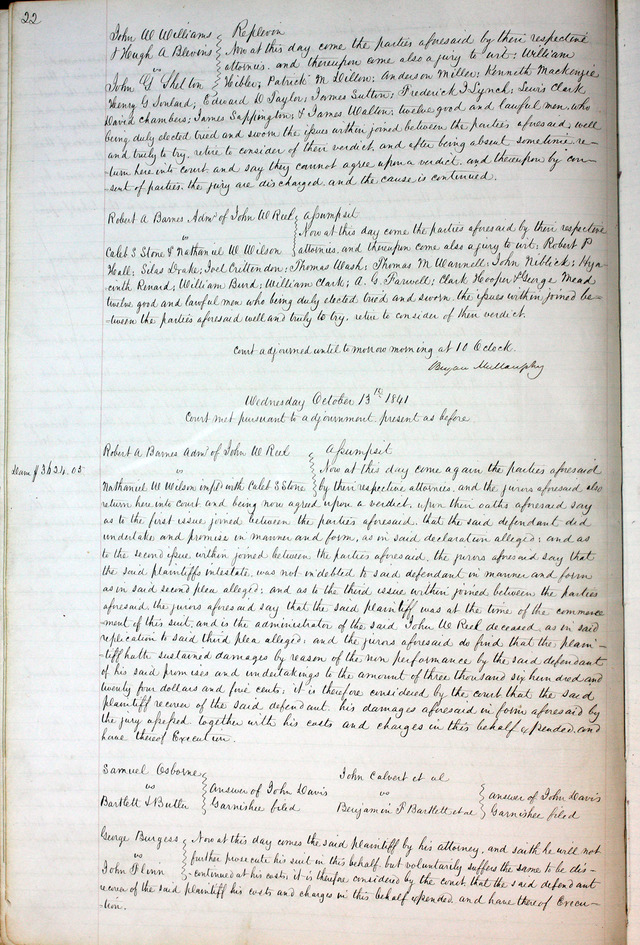 22
John W Williams & Hugh A Blevins
vs
John G Shelton
Replevin
Now at this day come the parties aforesaid by their respective
attornies, and thereupon come also a jury to wit: William
Hibler; Patrick M Dillon; Anderson Miller; Kenneth Mackenzie
Henry G Soulard; Edward D Taylor; James Sutton; Frederick F Lynch; Lewis Clark
David Chambers; James Sappington; & James Walton; twelve good and lawful men, who
being duly elected tried and sworn the issues within joined between the parties aforesaid, well
and truly to try, retire to consider of their verdict, and after being absent sometime re-
turn here into court, and say they cannot agree upon a verdict, and thereupon by con-
sent of parties, the jury are discharged, and the cause is continued.
Robert A Barnes Admr of John W Reel
vs
Caleb S Stone & Nathaniel W Wilson
Assumpsit
Now at this day come the parties aforesaid by their respective
attornies, and thereupon come also a jury to wit: Robert P
Hall; Silas Drake; Joel Crittendon; Thomas Wash; Thomas M Wannell; John Niblick; Hya-
cinth Renard; William Burd; William Clark; A. G. Farwell; Clark Hooper & George Mead
twelve good and lawful men who being duly elected tried and sworn, the issues within joined be-
tween the parties aforesaid well and truly to try, retire to consider of their verdict.
Court adjourned until tomorrow morning at 10 O'clock.
Bryan Mullanphy
Wednesday October 13th 1841
Court met pursuant to adjournment, present as before
Robert A Barnes Admr of John W Reel
vs
Nathaniel W Wilson impl with Caleb S Stone
Assumpsit
Dam $3624.05
Now at this day come again the parties aforesaid
by their respective attornies, and the jurors aforesaid also
return here into court and being now agreed upon a verdict, upon their oaths aforesaid say
as to the first issue joined between the parties aforesaid, that the said defendant did
undertake and promise in manner and form, as in said declaration alleged; and as
to the second issue within joined between the parties aforesaid, the jurors aforesaid say that
the said plaintiffs intestate, was not indebted to said defendant in manner and form
as in said second plea alleged; and as to the third issue within joined between the parties
aforesaid, the jurors aforesaid say that the said plaintiff was at the time of the commence
ment of this suit, and is the administrator of the said John W Reel deceased, as in said
replication to said third plea alleged; and the jurors aforesaid do find that the plain-
tiff hath sustained damages by reason of the non performance by the said defendant
of his said promises and undertakings to the amount of three thousand six hundred and
twenty four dollars and five cents; it is therefore considered by the court that the said
plaintiff recover of the said defendant, his damages aforesaid in form aforesaid by
the jury assessed together with his costs and charges in this behalf expended, and
have thereof Execution.
Samuel Osborne
vs
Bartlett & Butler
Answer of John Davis
Garnishee filed
John Calvert et al
vs
Benjamin F Bartlett et al
Answer of John Davis
Garnishee filed
George Burgess
vs
John Flinn
Now at this day comes the said plaintiff by his attorney, and saith he will not
further prosecute his suit in this behalf, but voluntarily suffers the same to be dis-
continued at his costs, it is therefore considered by the court, that the said defendant
recover of the said plaintiff his costs and charges in this behalf expended, and have thereof Execu-
tion.